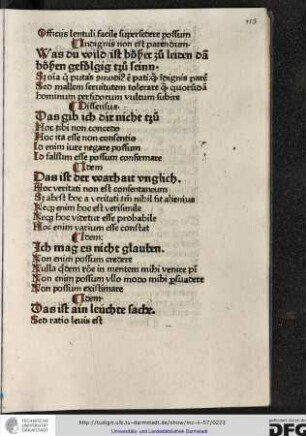 113
Officijs lentuli facile supersedere possum
Indignis non est parendum.
Was du wild ist bößer zů leiden dañ
bößen gefölgig tzů seinn.
Sed mallem seruitutem tolerare q̃ quorũdã
hominum perfidorum vultum subire
Dissensus.
Das gib ich dir nicht tzů
Hoc tibi non concedo
Hoc ita esse non consentio
Id enim iure negare possum
Id falsum esse possum confirmare
Idem
Das ist der warhait vnglich.
Hoc veritati non est consentaneum
Si abest hoc a veritati tm̃ nihil sit alienius
Neq; enim hoc est verisimile
Neq; hoc videtur esse probabile
Hoc enim varium esse constat
Idem.
Ich mag es nicht glauben.
Non enim possum credere
Nulla q̃dem rõe in mentem mihi venire põt
Non enim possum vllo modo mihi p̃suadere
Non possum existimare
Idem
Das ist ain leuchte sache.
Sed ratio leuis est
TECHNISCHE
UNIVERSITÄT
DARMSTADT
http://tudigit.ulb.tu-darmstadt.de/show/inc-ii-57/0223
Universitäts- und Landesbibliothek Darmstadt
DFG